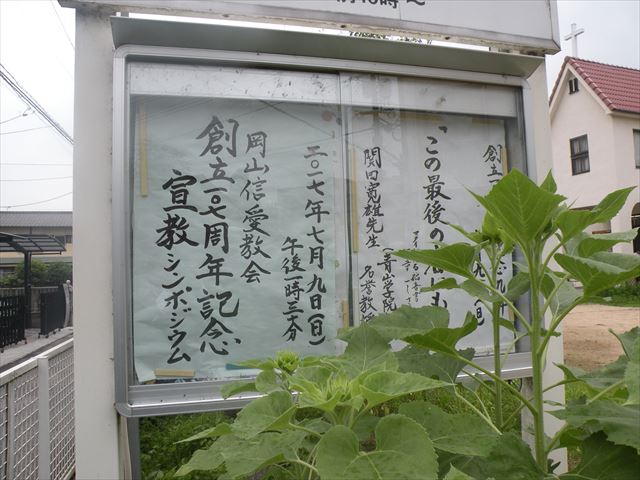 10時～
創立
「この最後の
関田寛雄先生
(青山学院
名誉教
二〇一七年七月九日(日)
午後
岡山信愛教会
創立一〇七周年記念
宣教シンポジウム